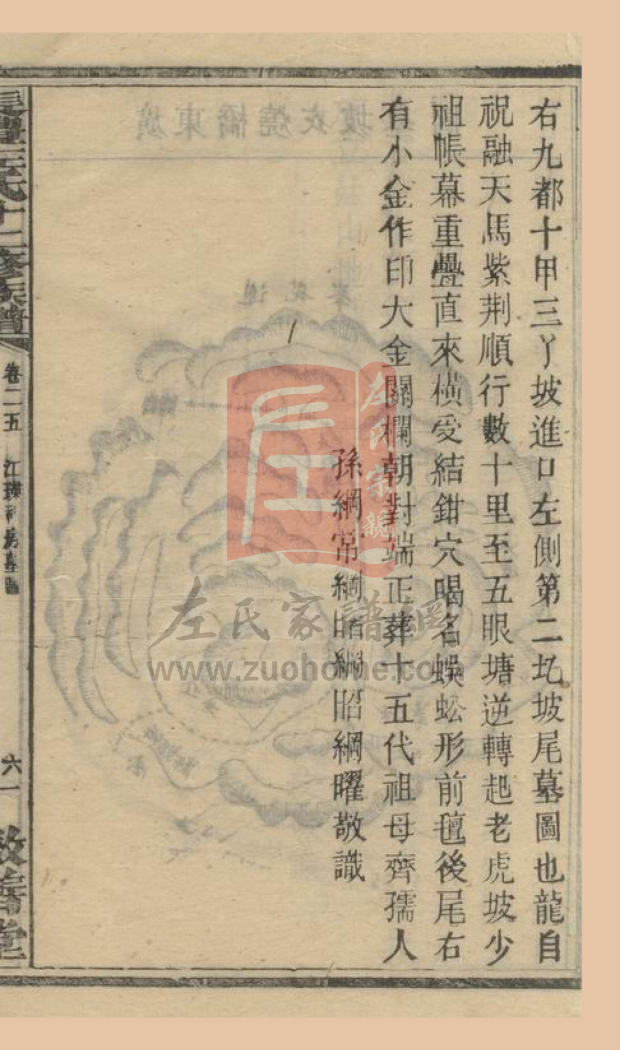 右九都十甲三丫坡進口左側第二圠坡尾墓圖也龍自
祝融天馬紫荆順行數十里至五眼塘逆轉起老虎坡少
祖帳幕重疊直來橫受結鉗穴喝名蜈蚣形前氊後尾右
有小金作印大金關欄朝對端正葬十五代祖母齊孺人
孫綱常綱綱昭綱曜敬識
左氏十二修族譜
卷二五
六一
敦善堂
坡衣燒橋東壙
左氏宗親
左氏家譜網
www.zuohome.com